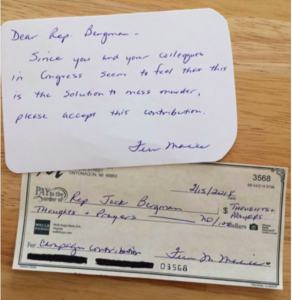 Dear Rep. Bergman -
Since you and your collegues
in Congress seem to feel that this
is the solution to mass murder,
please accept this contribution.
STREET
ONTONAGON, MI 49953
3568
2/15/2018
PAY to the
order of Rep. Jack Bergman $ Thoughts +
Prayers
Thoughts + Prayers no/100 Dollars
For Campaign Contribution
03568